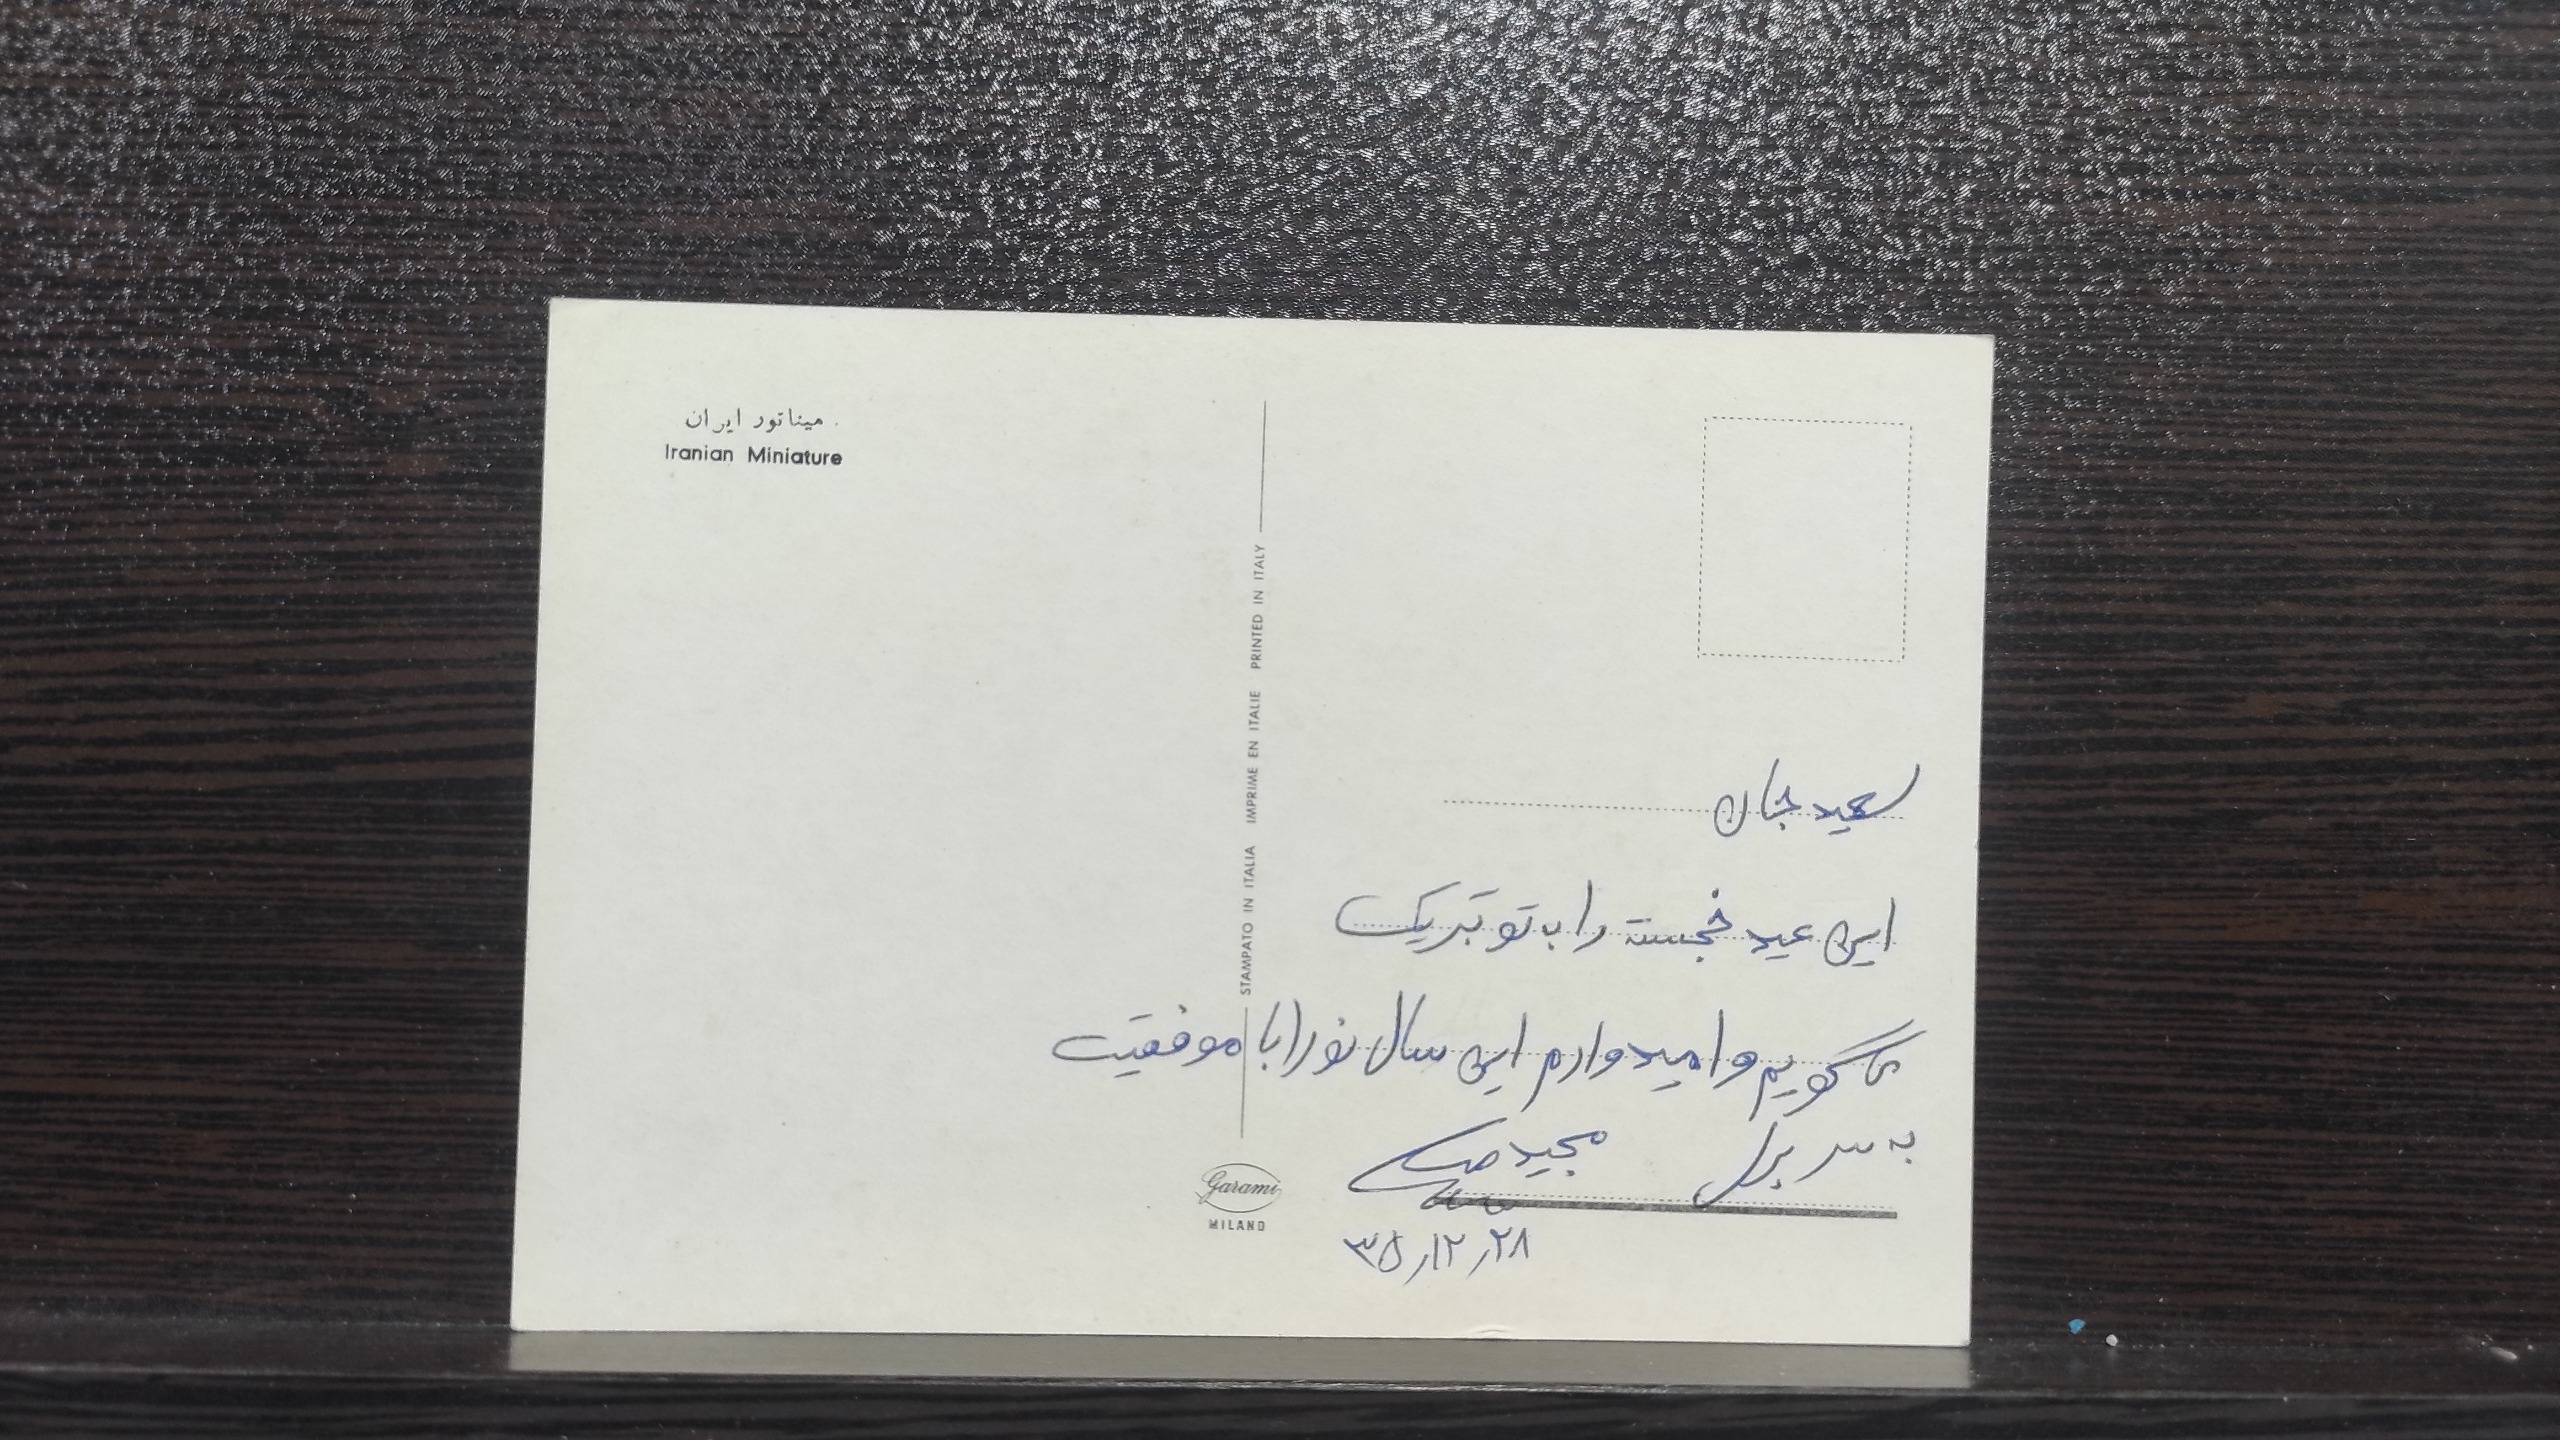 . میناتور ایران
Iranian Miniature
STAMPATO IN ITALIA IMPRIME EN ITALIE PRINTED IN ITALY
سعید جان
این عید خجسته را به تو تبریک
می گویم و امیدوارم این سال نو را با موفقیت
به سر بری
مجید
۳۵٫۱۲٫۲۸
Garami
MILANO